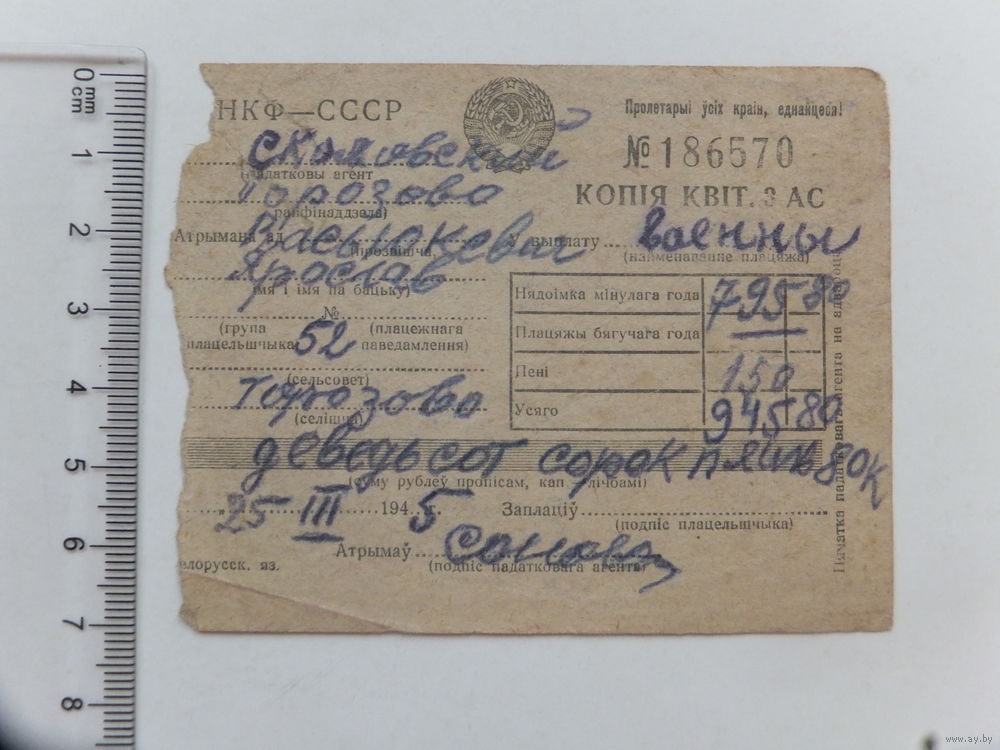 НКФ—СССР
Пролетарыі ўсіх краін, еднайцеся!
№ 186570
КОПІЯ КВІТ. З АС
(падатковы агент
Порозово
(райфінаддзела)
Атрымана ад Васюкевич У выплату Военны
(прозвішча, (найменаванне плацяжа)
Ярослав
імя і імя па бацьку)
№
(група (плацежнага
плацельшчыка 52 паведамлення)
(сельсовет)
Порозово
(селішча)
Нядоімка мінулага года 795 80
Плацяжы бягучага года
Пені 150
Усяго 945 80
деведьсот сорок пять 80 к
(суму рублеў пропісам, кап — лічбамі)
25 III 1945 Заплаціў
(подпіс плацельшчыка)
Атрымаў
(подпіс падатковага агента)
елорусск. яз.
Пячатка падатковага агента на адвароце
0 mm
cm
1
2
3
4
5
6
7
8
www.ay.by